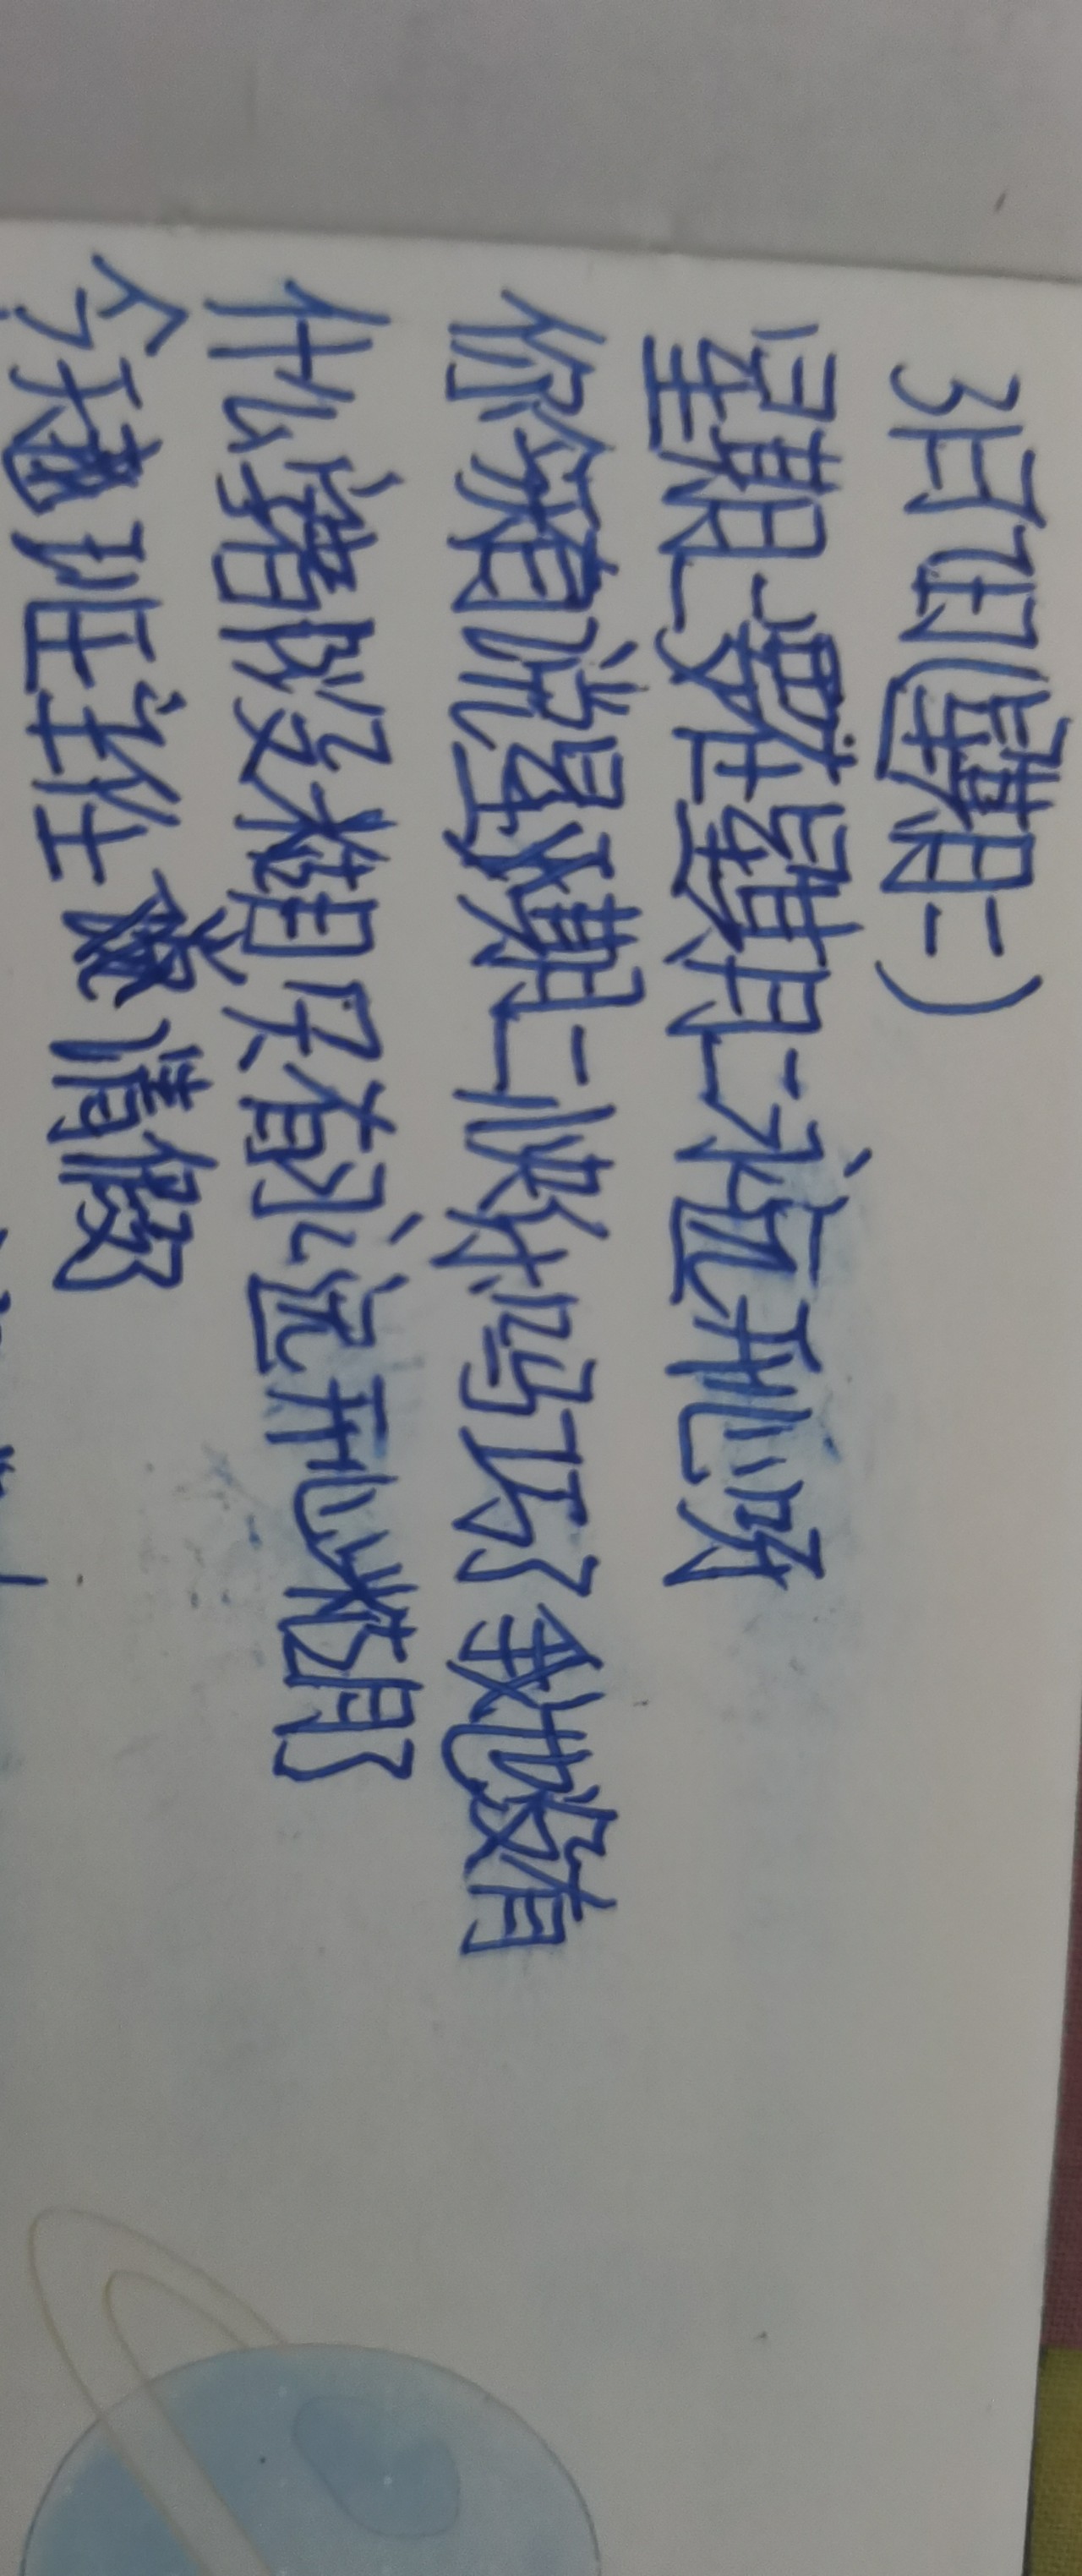 3月7日(星期二)
星期一要在星期二永远开心呀
你今天有说星期二快乐吗巧了我也没有
什么字都没糊只有永远开心糊了
今天班主任请假了